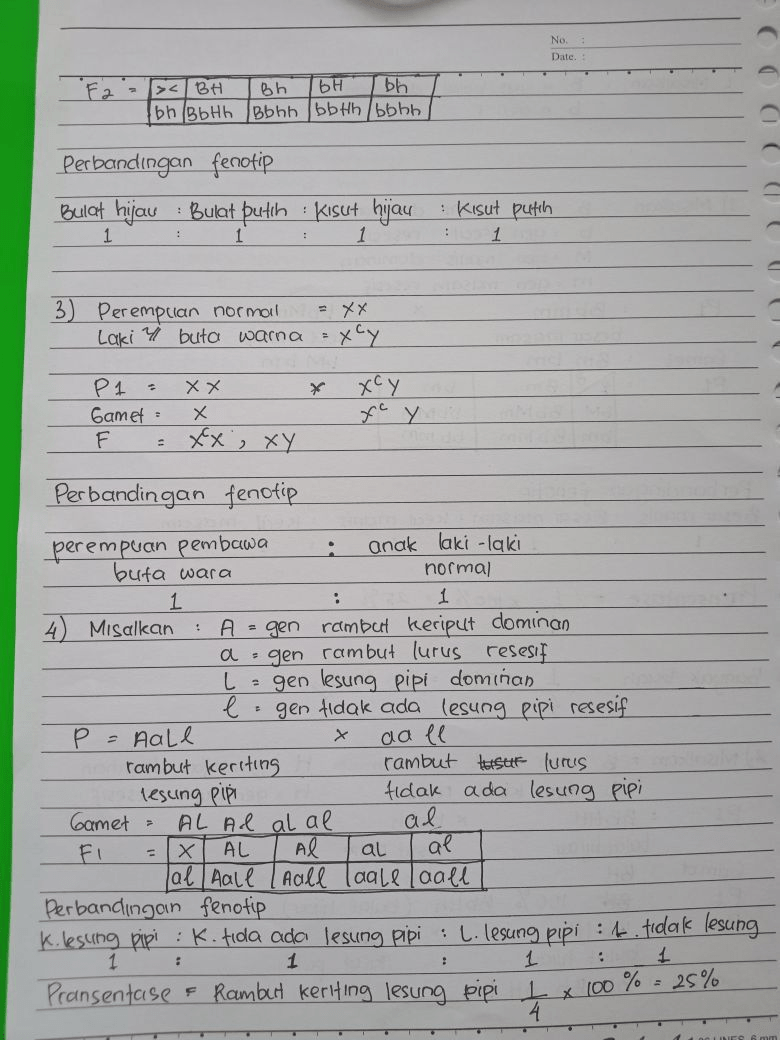 No. :
Date. :
F2 = >< BH Bh bH bh
bh BbHh Bbhh bbHh bbhh
Perbandingan fenotip
Bulat hijau : Bulat putih : Kisut hijau : Kisut putih
1 : 1 : 1 : 1
3) Perempuan normal = XX
Laki² buta warna = XᶜY
P1 = XX × XᶜY
Gamet = X Xᶜ Y
F = XᶜX , XY
Perbandingan fenotip
perempuan pembawa : anak laki-laki
buta wara normal
1 : 1
4) Misalkan : A = gen rambut keriput dominan
a = gen rambut lurus resesif
L = gen lesung pipi dominan
l = gen tidak ada lesung pipi resesif
P = AaLl × aa ll
rambut keriting rambut lurus
lesung pipi tidak ada lesung pipi
Gamet = AL Al aL al al
F1 = X AL Al aL al
al AaLl Aall aaLl aall
Perbandingan fenotip
K.lesung pipi : K. tida ada lesung pipi : L. lesung pipi : L. tidak lesung
1 : 1 : 1 : 1
Pransentase = Rambut keriting lesung pipi 1/4 × 100 % = 25%